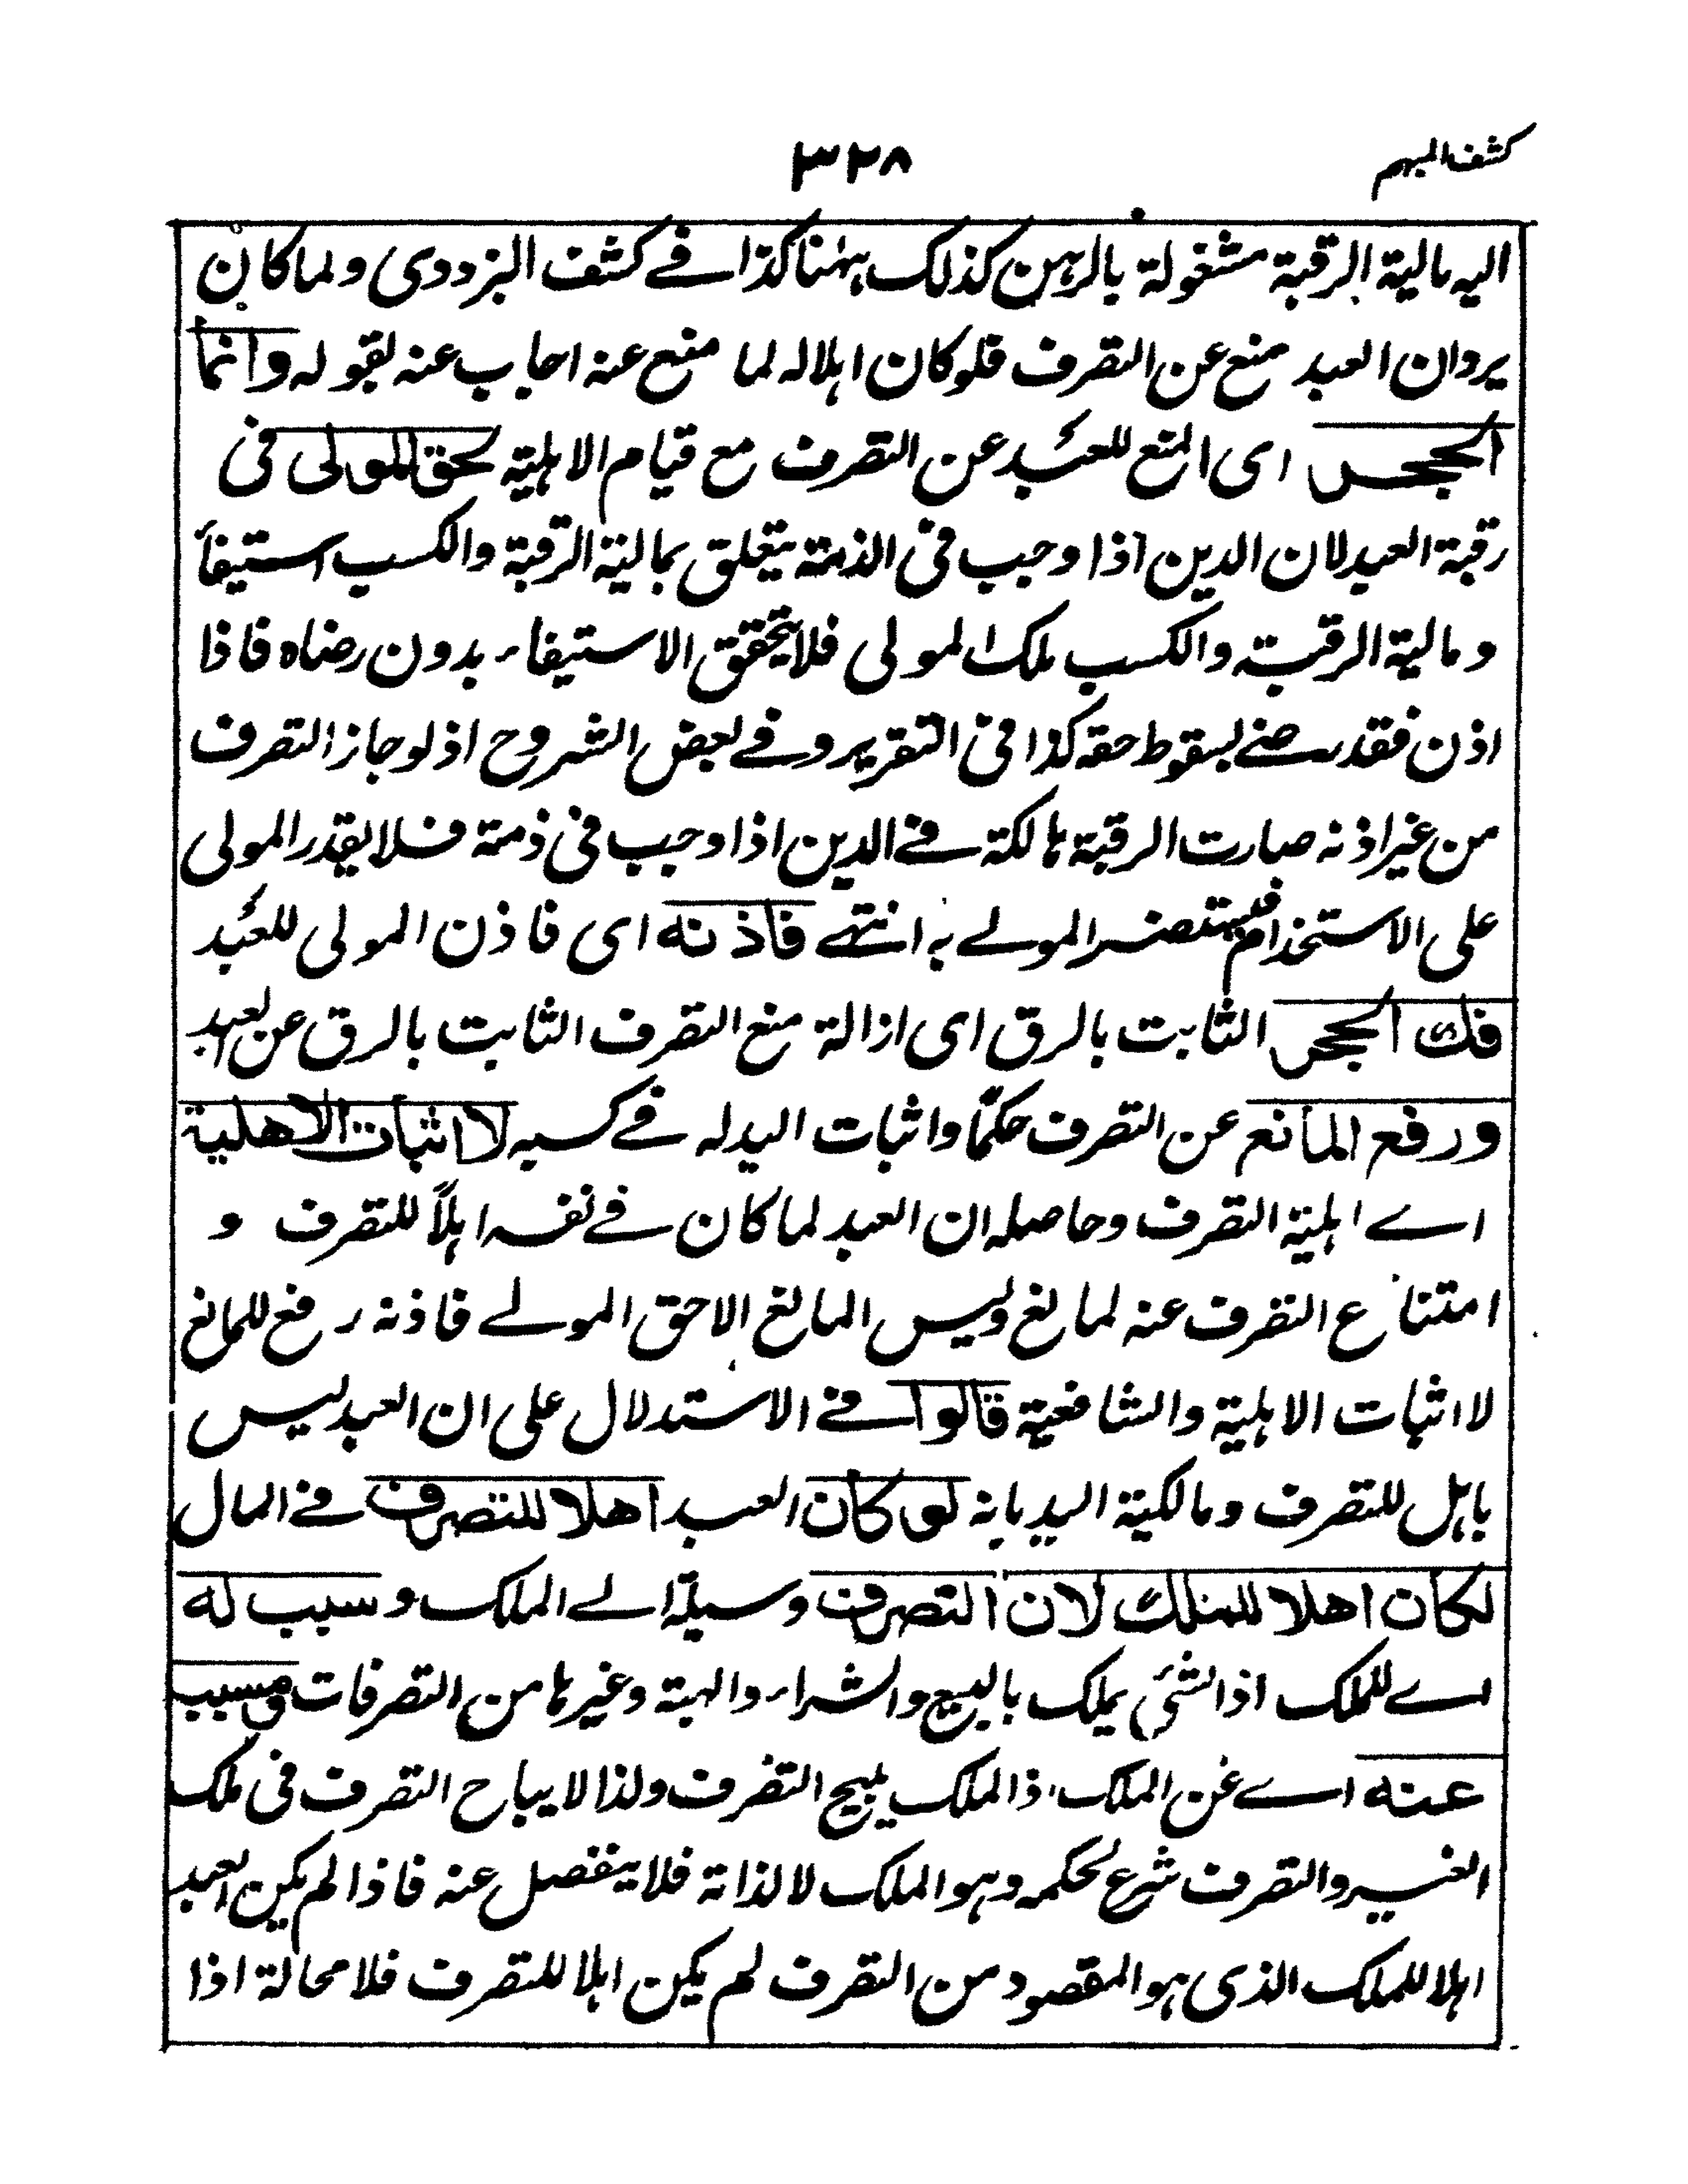 كشف المبهم
٣٢٨
اليه مالية الرقبة مشغولة بالرهن كذلك ههنا كذا فى كشف البزدوى ولما كان
يرد ان العبد منع عن التصرف فلو كان اهلا له لما منع عنه اجاب عنه بقوله وانما
الحجر اى المنع للعبد عن التصرف مع قيام الاهلية لحق المولى فى
رقبة العبد لان الدين اذا وجب فى الذمة يتعلق بمالية الرقبة والكسب استيفأ
ومالية الرقبة والكسب ملك المولى فلا يتحقق الاستيفاء بدون رضاه فاذا
اذن فقد رضى بسقوط حقه كذا فى التقرير وفى بعض الشروح اذ لو جاز التصرف
من غير اذنه صارت الرقبة هالكة فى الدين اذا وجب فى ذمة فلا يقدر المولى
على الاستخدام فيتضرر المولى به انتهى فاذنه اى فاذن المولى للعبد
فك الحجر الثابت بالرق اى ازالة منع التصرف الثابت بالرق عن العبد
ورفع المانع عن التصرف حكمًا واثبات اليد له فى كسبه لا اثبات الاهلية
اى اهلية التصرف وحاصله ان العبد لما كان فى نفسه اهلاً للتصرف و
امتناع التصرف عنه لمانع وليس المانع الا حق المولى فاذنه رفع للمانع
لا اثبات الاهلية والشافعية قالوا فى الاستدلال على ان العبد ليس
باهل للتصرف ومالكية اليد بانه لو كان العبد اهلا للتصرف فى المال
لكان اهلا للملك لان التصرف وسيلة الى الملك و سبب له
اى للملك اذ الشئ يملك بالبيع والشراء والهبة وغيرها من التصرفات ومسبب
عنه اى عن الملك اذ الملك يبيح التصرف ولذا لا يباح التصرف فى ملك
الغير والتصرف شرع لحكمه وهو الملك لا لذاته فلا ينفصل عنه فاذا لم يكن العبد
اهلا للملك الذى هو المقصود من التصرف لم يكن اهلا للتصرف فلا محالة اذا